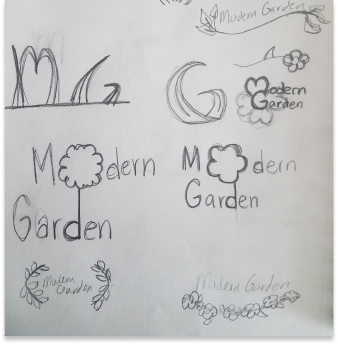 Modern Garden
M G
G
Modern
Garden
Modern
Garden
M dern
Garden
Modern
Garden
Modern Garden